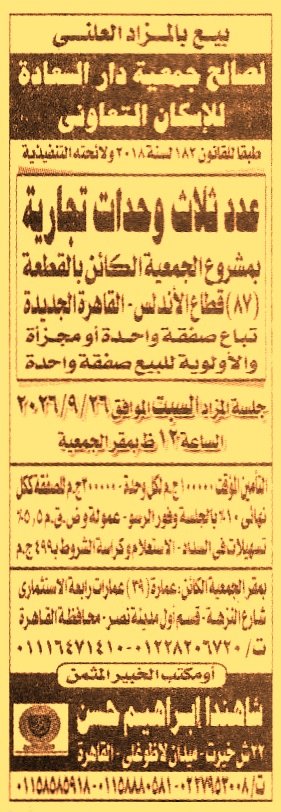 بيع بالمزاد العلنى
لصالح جمعية دار السعادة
للإسكان التعاونى
طبقا للقانون ١٨٢ لسنة ٢٠١٨ ولائحته التنفيذية
عدد ثلاث وحدات تجارية
بمشروع الجمعية الكائن بالقطعة
(٨٧) قطاع الأندلس - القاهرة الجديدة
تباع صفقة واحدة أو مجزأة
والأولوية للبيع صفقة واحدة
جلسة المزاد السبت الموافق ٢٠٢٦/٩/٢٦
الساعة ١٢ظ بمقر الجمعية
التأمين المؤقت ١٠٠٠٠٠ج.م لكل وحدة - ٣٠٠٠٠٠ج.م للصفقة ككل
نهائى ١٠٪ بالجلسة وفور الرسو - عمولة و ض.ق.م ٥,٥٪
تسهيلات فى السداد - الاستعلام وكراسة الشروط بـ٤٩٩ج.م
بمقر الجمعية الكائن: عمارة (٣٩) عمارات رابعة الاستثمارى
شارع النزهة - قسم أول مدينة نصر - محافظة القاهرة
ت/ ٠١٢٢٨٢٠٦٧٢٠-٠١١١٦٤٧١٤١٠
أو مكتب الخبير المثمن
شاهندا إبراهيم حسن
٢٧ش خيرت - ميدان لاظوغلى - القاهرة
ت/ ٠٢٢٧٩٥٢٠٠٨-٠١١٥٨٨٨٠٥٨١-٠١١٥٨٥٨٥٩١٨